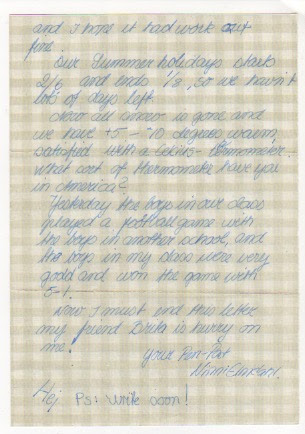 and I hope it had work out
fore.
Our Summer holidays starts
2/6 and ends 1/8, so we havn't
lots of days left.
Now all snow is gone and
we have +5 - 10 degrees warm,
satisfied with a Celsius-termometer.
What sort of thermometer have you
in America?
Yesterday the boys in our class
played a football game with
the boys in another school, and
the boys in my class were very
good and won the game with
5-1.
Now I must end this letter
my friend is hurry on
me!
Your Pen-Pal
Hej Ps: Write soon!